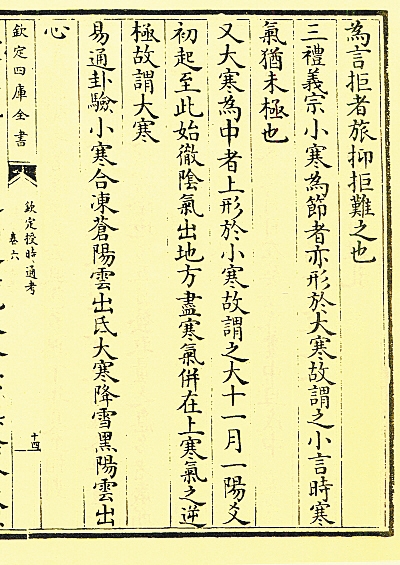 為言拒者旅抑拒難之也
三禮義宗小寒為節者亦形於大寒故謂之小言時寒
氣猶未極也
又大寒為中者上形於小寒故謂之大十一月一陽爻
初起至此始徹陰氣出地方盡寒氣併在上寒氣之逆
極故謂大寒
易通卦驗小寒合凍蒼陽雲出氐大寒降雪黑陽雲出
心
欽定四庫全書
欽定授時通考
卷六
十四